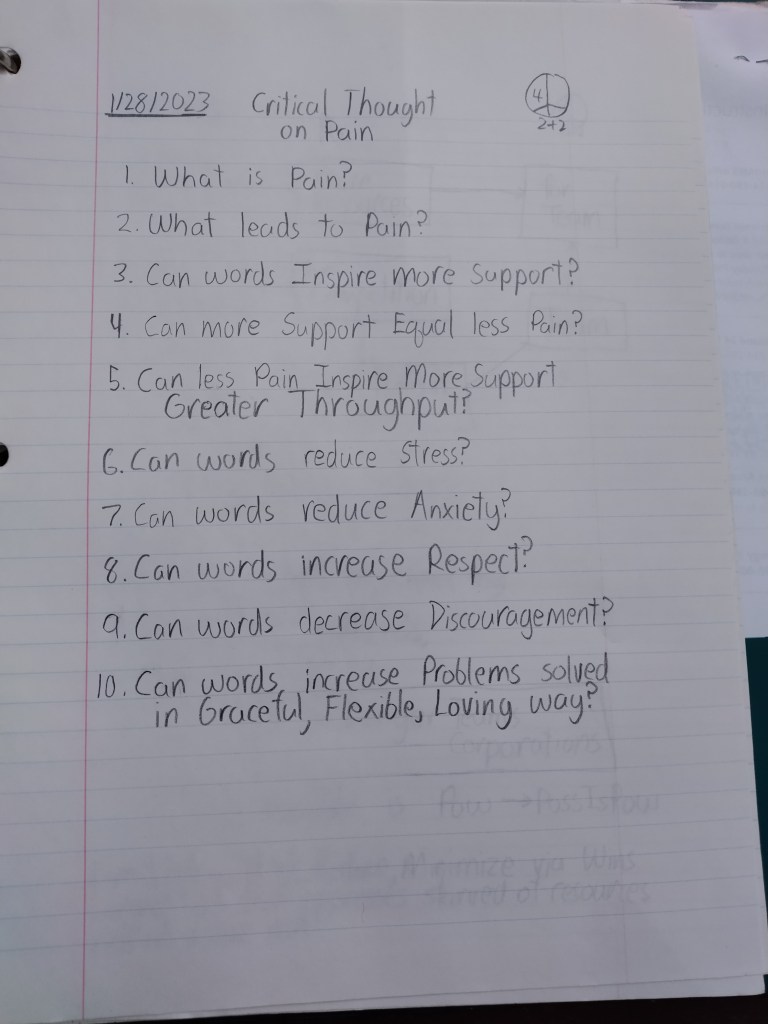 1/28/2023 Critical Thought
on Pain
4
2+2
1. What is Pain?
2. What leads to Pain?
3. Can words Inspire more Support?
4. Can more Support Equal less Pain?
5. Can less Pain Inspire More Support
Greater Throughput?
6. Can words reduce Stress?
7. Can words reduce Anxiety?
8. Can words increase Respect?
9. Can words decrease Discouragement?
10. Can words increase Problems solved
in Graceful, Flexible, Loving way?
Corporations